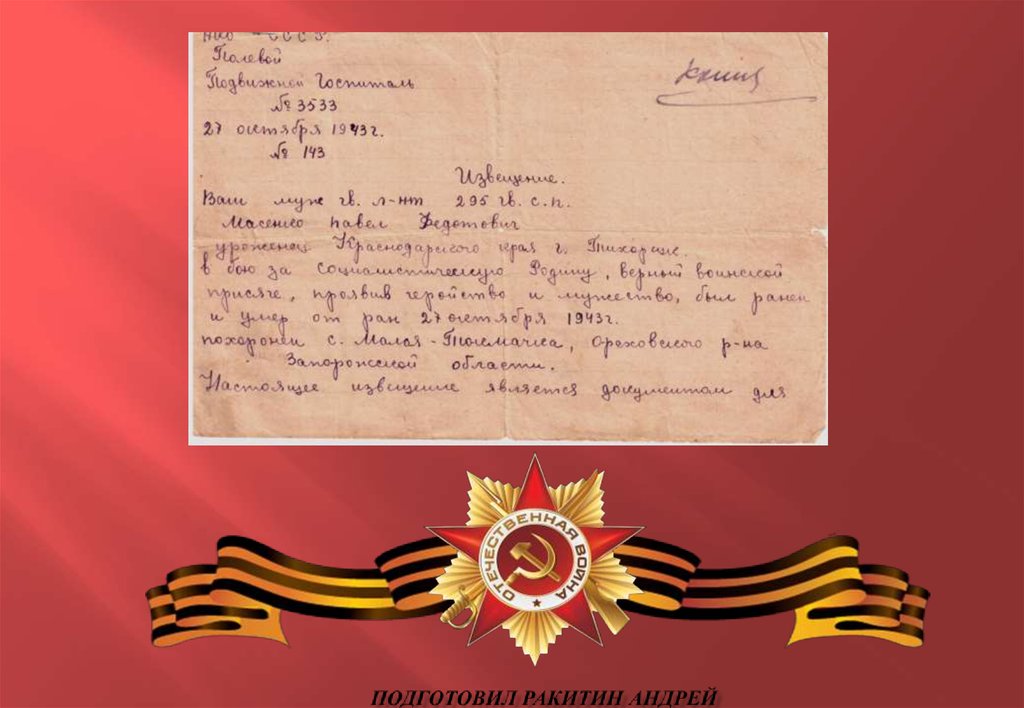 НКО - СССР.
Полевой
Подвижной Госпиталь
№ 3533
27 октября 1943г.
№ 143
Копия
Извещение.
Ваш муж гв. л-нт 295 гв. с.п.
Масенко Павел Федотович
уроженец Краснодарского края г. Тихорецк.
в бою за социалистическую Родину, верный воинской
присяге, проявив геройство и мужество, был ранен
и умер от ран 27 октября 1943г.
похоронен с. Малая-Токмачка, Ореховского р-на
Запорожской области.
Настоящее извещение является документом для
ОТЕЧЕСТВЕННАЯ ВОЙНА
ПОДГОТОВИЛ РАКИТИН АНДРЕЙ